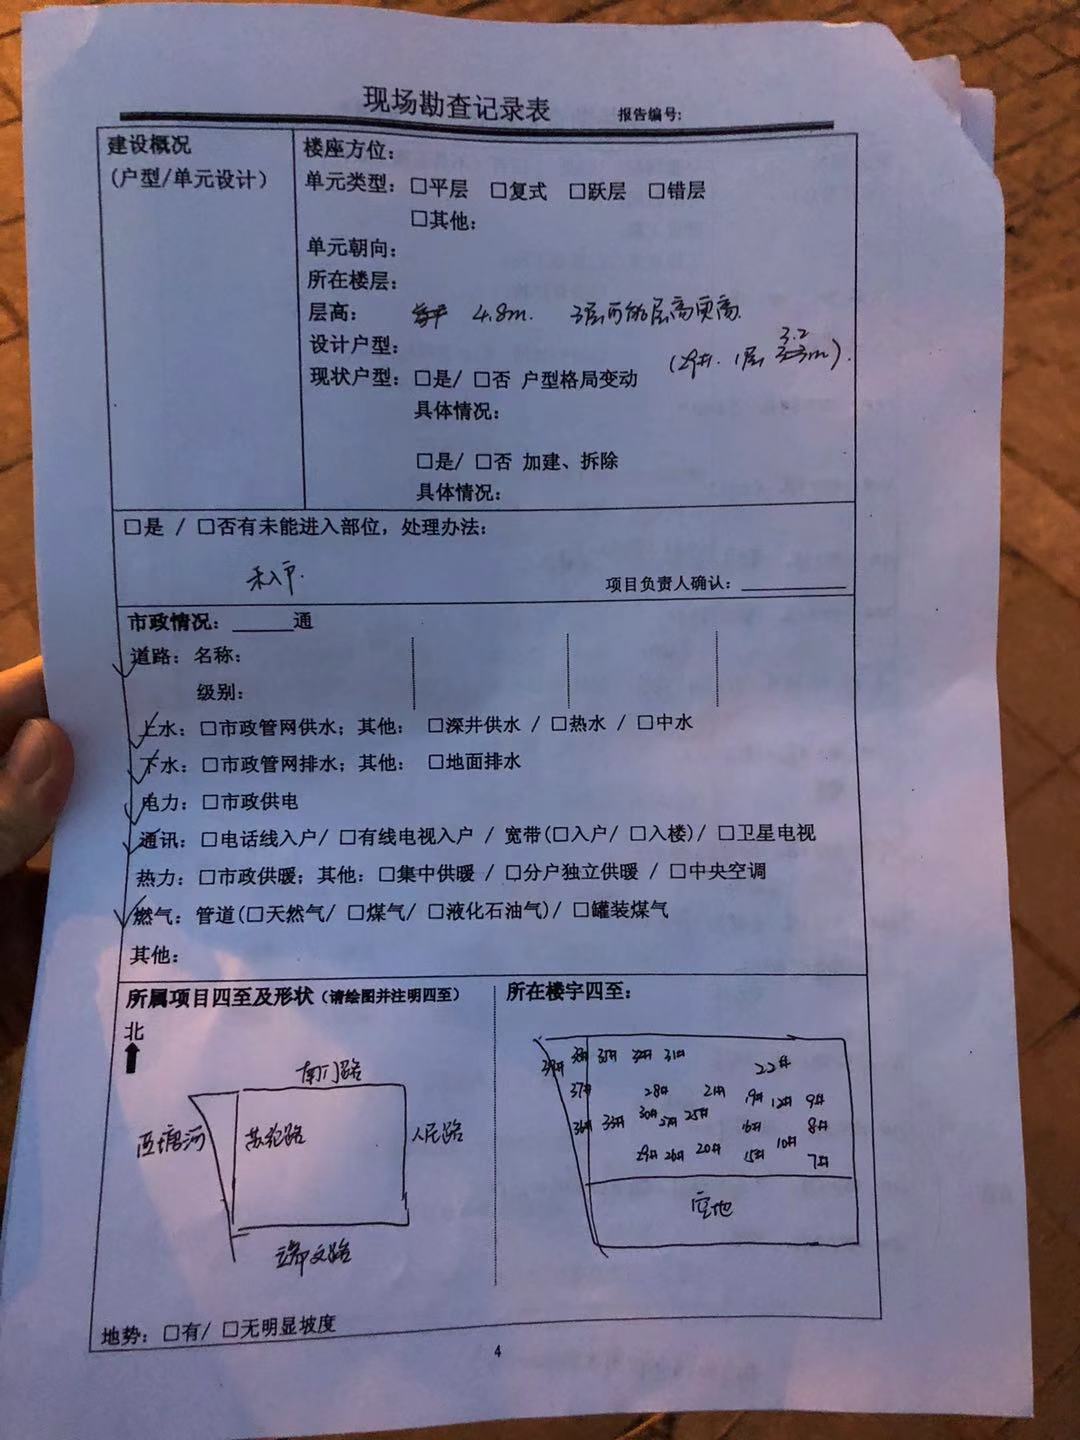 现场勘查记录表 报告编号:
建设概况
(户型/单元设计)
楼座方位:
单元类型: □平层 □复式 □跃层 □错层
□其他:
单元朝向:
所在楼层:
层高: 4.8m. 3层可能层高更高
(29#. 1层 3.2 m).
设计户型:
现状户型: □是/ □否 户型格局变动
具体情况:
□是/ □否 加建、拆除
具体情况:
□是 / □否有未能进入部位, 处理办法:
未入户.
项目负责人确认:
市政情况: 通
道路: 名称:
级别:
上水: □市政管网供水; 其他: □深井供水 / □热水 / □中水
下水: □市政管网排水; 其他: □地面排水
电力: □市政供电
通讯: □电话线入户/ □有线电视入户 / 宽带(□入户/ □入楼)/ □卫星电视
热力: □市政供暖; 其他: □集中供暖 / □分户独立供暖 / □中央空调
燃气: 管道(□天然气/ □煤气/ □液化石油气)/ □罐装煤气
其他:
所属项目四至及形状(请绘图并注明四至)
北
南门路
西塘河
苏轮路
人民路
所在楼宇四至:
39# 38# 35# 32# 31#
22#
37# 28# 21# 19# 12# 9#
36# 33# 30# 27# 25# 16# 8#
29# 26# 20# 15# 10# 7#
空地
地势: □有/ □无明显坡度
4